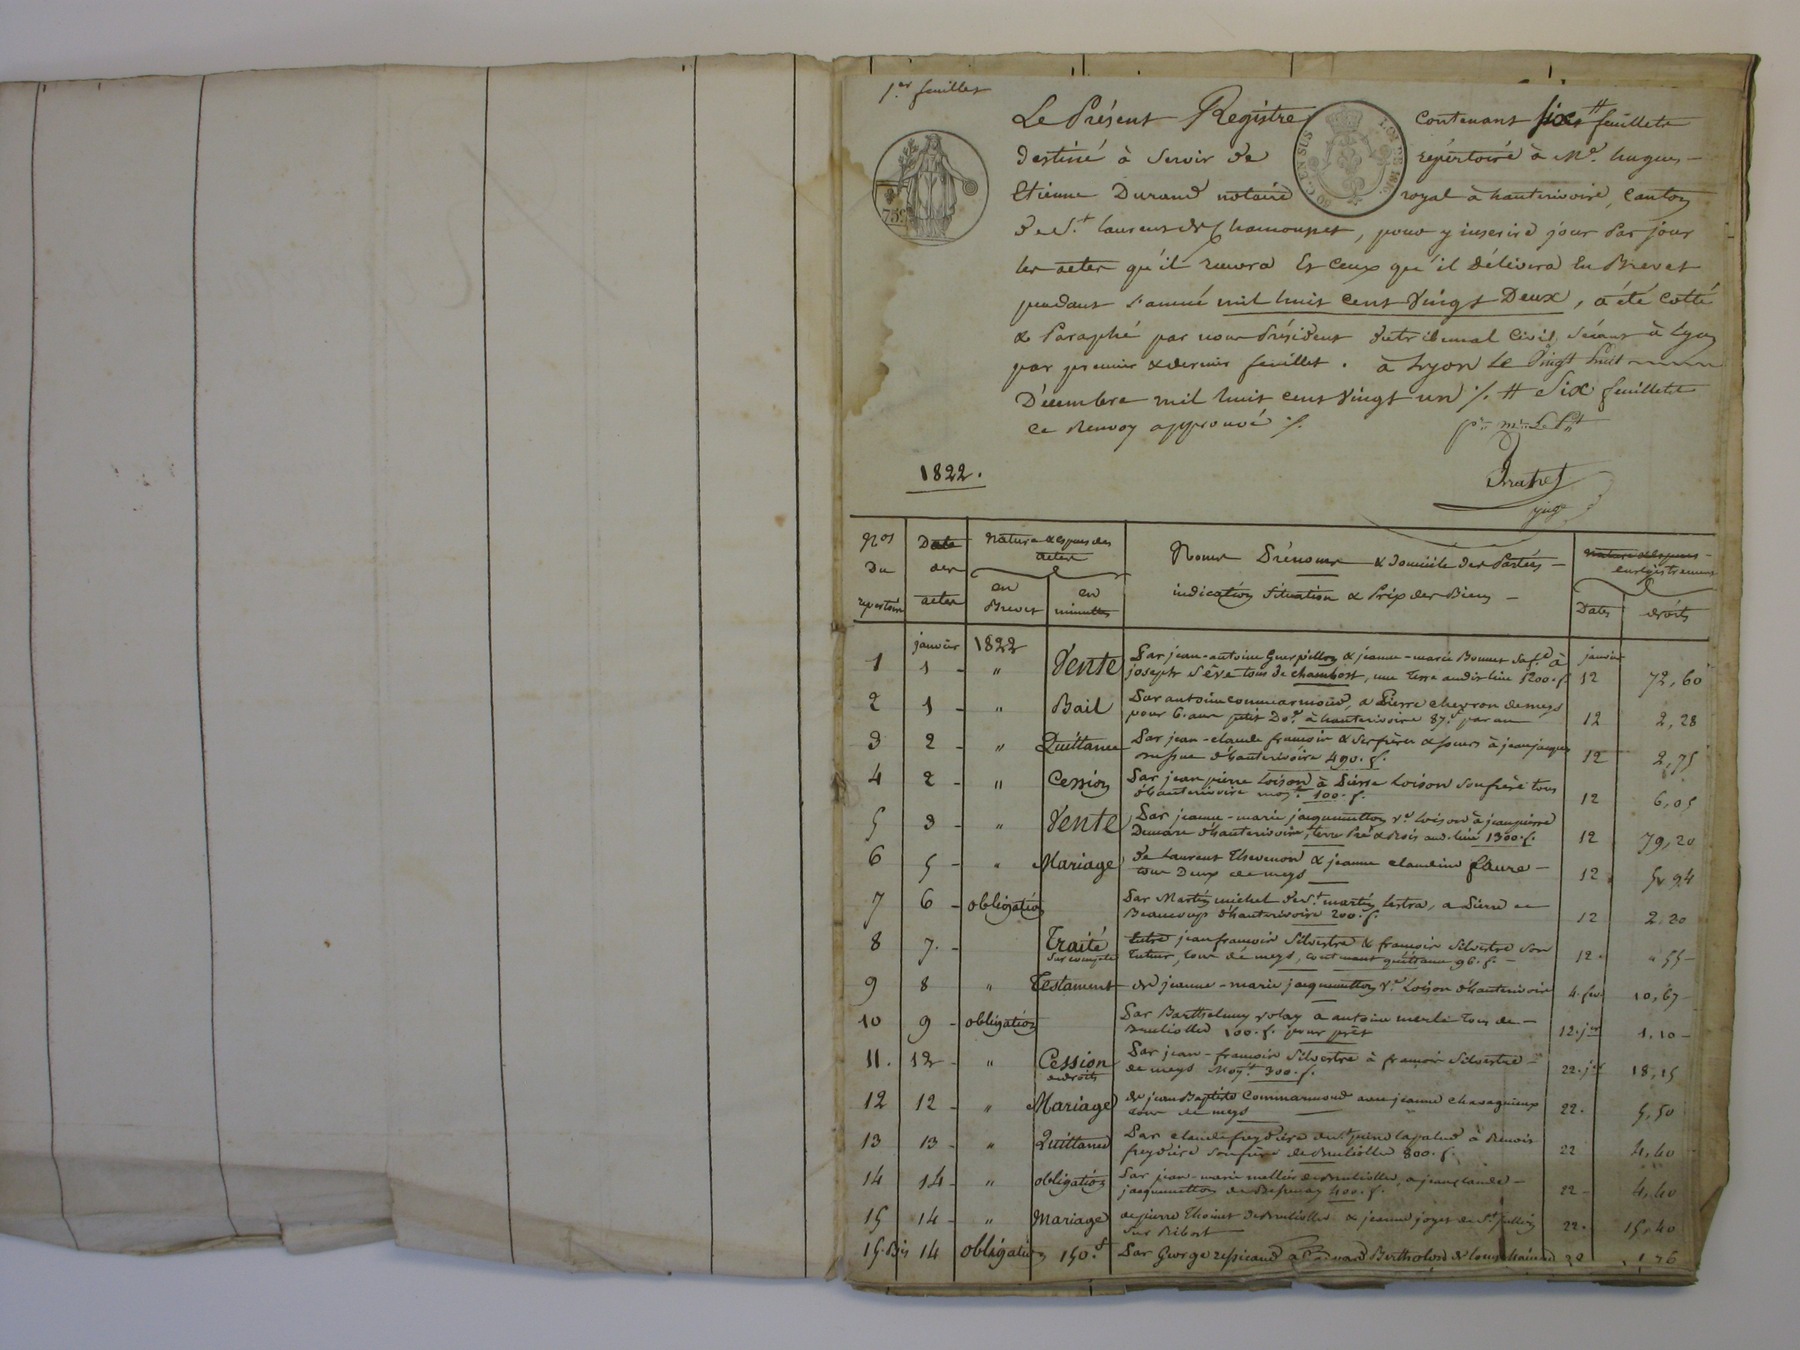 1.er feuillet
Le Présent Registre contenant six # feuillets
destiné à servir de répertoire à Me. hugues
Etienne Durand notaire royal à hauterivoire, canton
de St. laurent de Chamousset, pour y inscrire jour par jour
les actes qu'il recevra Et Ceux qu'il Délivera En Brevet
pendant l'année mil huit cent Vingt Deux, a été cotté
& Paraphé par nous Président du tribunal Civil, séant à Lyon
par premier & dernier feuillet. à Lyon Le Vingt huit
Décembre mil huit cent Vingt un /. # Six feuillets
ce Renvoy approuvé /.
juge
1822.
75c
Nos Date Nature & espèces des actes Noms Prénoms & Domicile des Parties
Du des
répertoire actes en Brevet en minutes indication Situation & Prix des Biens enregistrement Dates droits
janvier 1822 janvier
1 1 " Vente Par jean-antoine & jeanne-marie Bonnet à
joseph Sève tous de chambost, une terre audit lieu 1200.f 12 72,60
2 1 " Bail Par antoine commarmond, a Pierre chevron de meys
pour 6. ans petit à hauterivoire 87.f par an 12 2,28
3 2 " Quittance Par jean-claude françois & ses frères & soeurs à jean jacques
d'hauterivoire 490.f. 12 2,75
4 2 " Cession Par jean pierre Loison à Pierre Loison son frère tous
d'hauterivoire moyt. 100.f. 12 6,05
5 3 " Vente Par jeanne-marie jacquemetton Ve Loison à jean pierre
d'hauterivoire, terre Pré & Bois aud. lieu 1300.f. 12 79,20
6 5 " Mariage de Laurent Thevenon & jeanne claudine faure
tous Deux de meys 12
7 6 obligation Par Martin michel de St. martin lestra, a Pierre
Beaucoup d'hauterivoire 200.f. 12 2,20
8 7. Traité Entre jean françois Silvestre & françois Silvestre son
sur compte tuteur, tous de meys, contenant quittance 96.f. 12. " 55
9 8 " Testament de jeanne-marie jacquemetton Ve Loison d'hauterivoire 4. fer. 10,67
10 9 obligation Par Barthelemy à antoine merle tous de
Brullioles 100.f. pour prêt 12. jer 1,10
11. 12 " Cession Par jean-françois Silvestre à françois Silvestre
de droits de meys Moyt. 300.f. 22. jer 18,15
12 12 " Mariage de jean Baptiste Commarmond avec jeanne
tous de meys 22. 5,50
13 13 " Quittance Par claude freydière de St. à Benoit
freydière son frère de Brullioles 800.f. 22 4,40
14 14 " obligation Par jean-marie mellier de Brullioles, a jean claude
jacquemetton de Bessenay 400.f. 22 4,40
15 14 " Mariage de pierre Thoinet de Brullioles & jeanne joyet de St. julien
sur Bibost 22. 15,40
15. Bis 14 obligation 150.f Par George à Bertholon 22 1,76